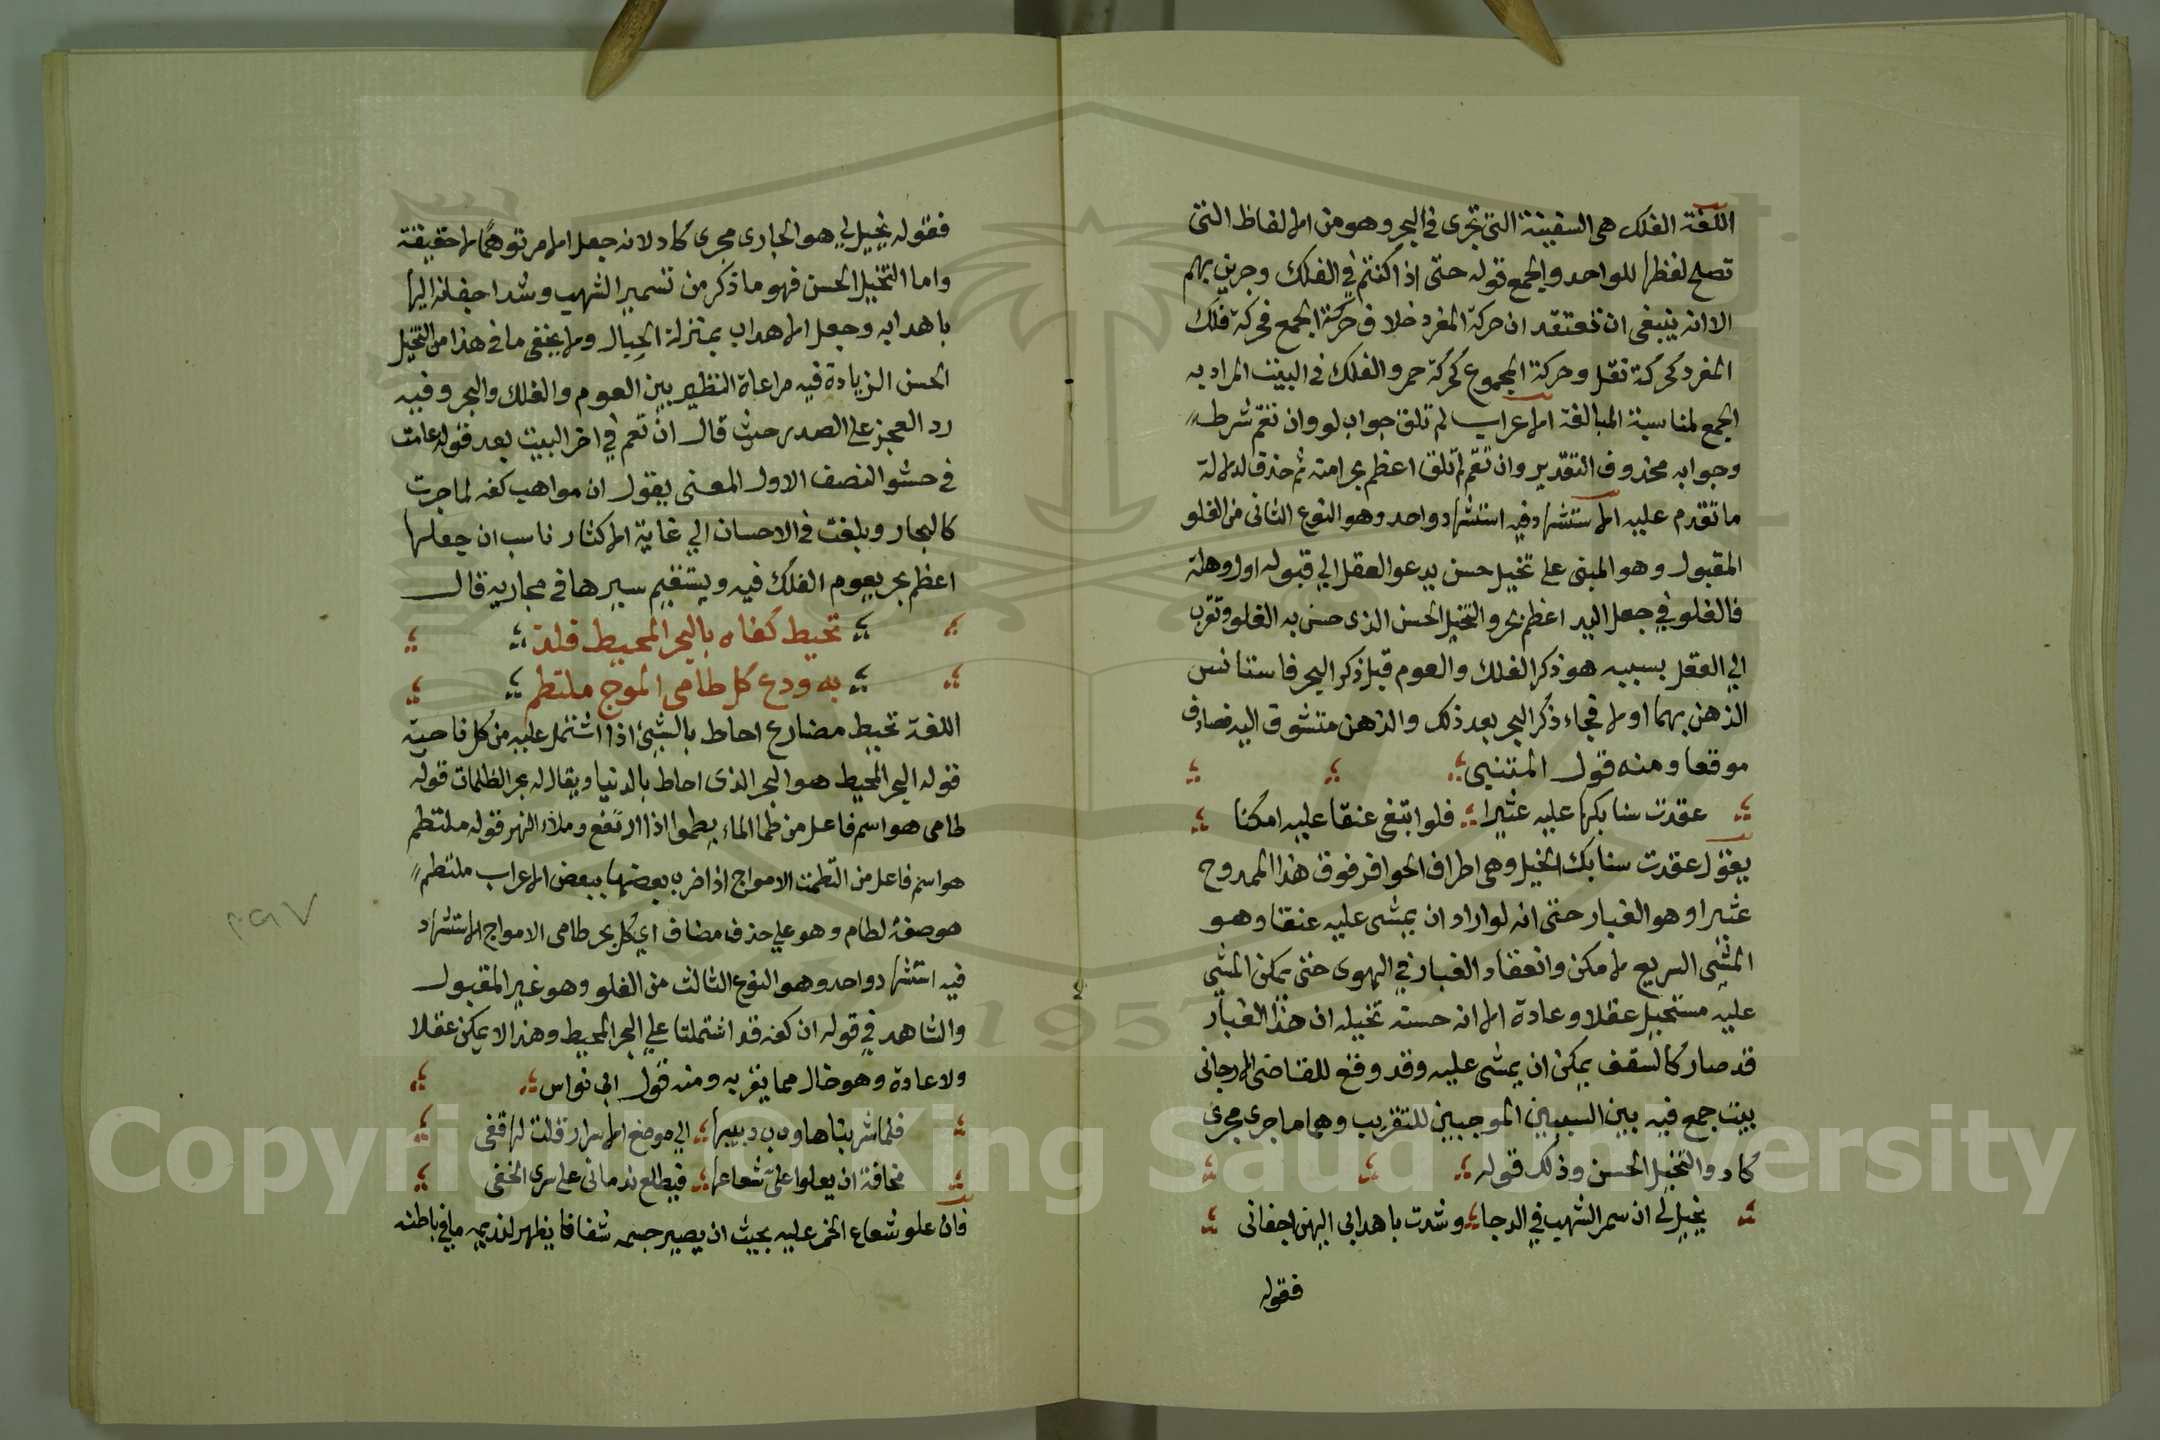 اللغة الفلك هى السفينة التى تجرى فى البحر وهو من الالفاظ التى
تصلح لفظها للواحد والجمع قوله حتى اذا كنتم في الفلك وجرين بهم
الا انه ينبغى ان تعتقد ان حركة المفرد خلاف حركة الجمع فحركة فلك
المفرد كحركة نقل وحركة المجموع كحركة حمر والفلك فى البيت المراد به
الجمع لمناسبة المبالغة الاعراب لم تلق جواب لو وان تعم شرط
وجوابه محذوف التقدير وان تعم لم تلق اعظم بحرا منه ثم حذف لدلالة
ما تقدم عليه الاستشهاد فيه استشهاد واحد وهو النوع الثانى من الغلو
المقبول وهو المبنى على تخيل حسن يدعو العقل الي قبوله اول وهلة
فالغلو في جعل اليد اعظم بحر والتخيل الحسن الذى حسن به الغلو وتقرب
الي العقل بسببه هو ذكر الفلك والعوم قبل ذكر البحر فاستانس
الذهن بهما اولا فجاء ذكر البحر بعد ذلك والذهن متشوق اليه فصادف
موقعا ومنه قول المتنبي
عقدت سنابكها عليه عثيرا فلو ابتغى عنقا عليه امكنا
يقول عقدت سنابك الخيل وهى اطراف الحوافر فوق هذا الممدوح
عثيرا وهو الغبار حتى انه لو اراد ان يمشى عليه عنقا وهو
المشي السريع لامكن وانعقاد الغبار في الهوى حتى يمكن المشي
عليه مستحيل عقلا وعادة الا انه حسنه تخيله ان هذا الغبار
قد صار كالسقف يمكن ان يمشى عليه وقد وقع للقاضى الارجانى
بيت جمع فيه بين السببين الموجبين للتقريب وهما ما جرى مجرى
كاد والتخيل الحسن وذلك قوله
يخيل لى ان سمر الشهب في الدجا وشدت باهدابى اليهن اجفانى
فقوله
فقوله يخيل لي هو الجارى مجرى كاد لانه جعل الامر توهما لا حقيقة
واما التخيل الحسن فهو ما ذكر من تسمير الشهب وشد اجفانه اليها
باهدابه وجعل الاهداب بمنزلة الحبال ولا يخفى ما فى هذا من التخيل
الحسن الزيادة فيه مراعاة النظير بين العوم والفلك والبحر وفيه
رد العجز على الصدر حيث قال ان تعم في اخر البيت بعد قوله عامت
فى حشو النصف الاول المعنى يقول ان مواهب كفه لما جرت
كالبحار وبلغت فى الاحسان الي غاية الاكثار ناسب ان جعلها
اعظم بحر يعوم الفلك فيه ويستقيم سيرها فى مجاريه قال
تحيط كفاه بالبحر المحيط فلذ
به ودع كل طامى الموج ملتطم
اللغة تحيط مضارع احاط بالشئ اذا اشتمل عليه من كل ناحية
قوله البحر المحيط هو البحر الذى احاط بالدنيا ويقال له بحر الظلمات قوله
طامى هو اسم فاعل من طما الماء يطموا اذا ارتفع وملاء النهر قوله ملتطم
هو اسم فاعل من التطمت الامواج اذا ضرب بعضها ببعض الاعراب ملتطم
هو صفة لطام وهو على حذف مضاف اي كل بحر طامى الامواج الاستشهاد
فيه استشهاد واحد وهو النوع الثالث من الغلو وهو غير المقبول
والشاهد في قوله ان كفه قد اشتملتا علي البحر المحيط وهذا لا يمكن عقلا
ولا عادة وهو خال مما يقربه ومنه قول ابى نواس
فلما شربناها ودب دبيبها الي موضع الاسرار قلت لها قفى
مخافة ان يعلوا علي شعاعها فيطلع ندمانى على سرى الخفى
فان علو شعاع الخمر عليه بحيث ان يصير جسمه شفافا يظهر لنديمه ما في باطنه